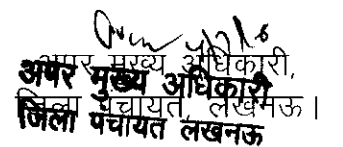 अपर मुख्य अधिकारी,
अपर मुख्य अधिकारी
जिला पंचायत, लखनऊ।
जिला पंचायत लखनऊ